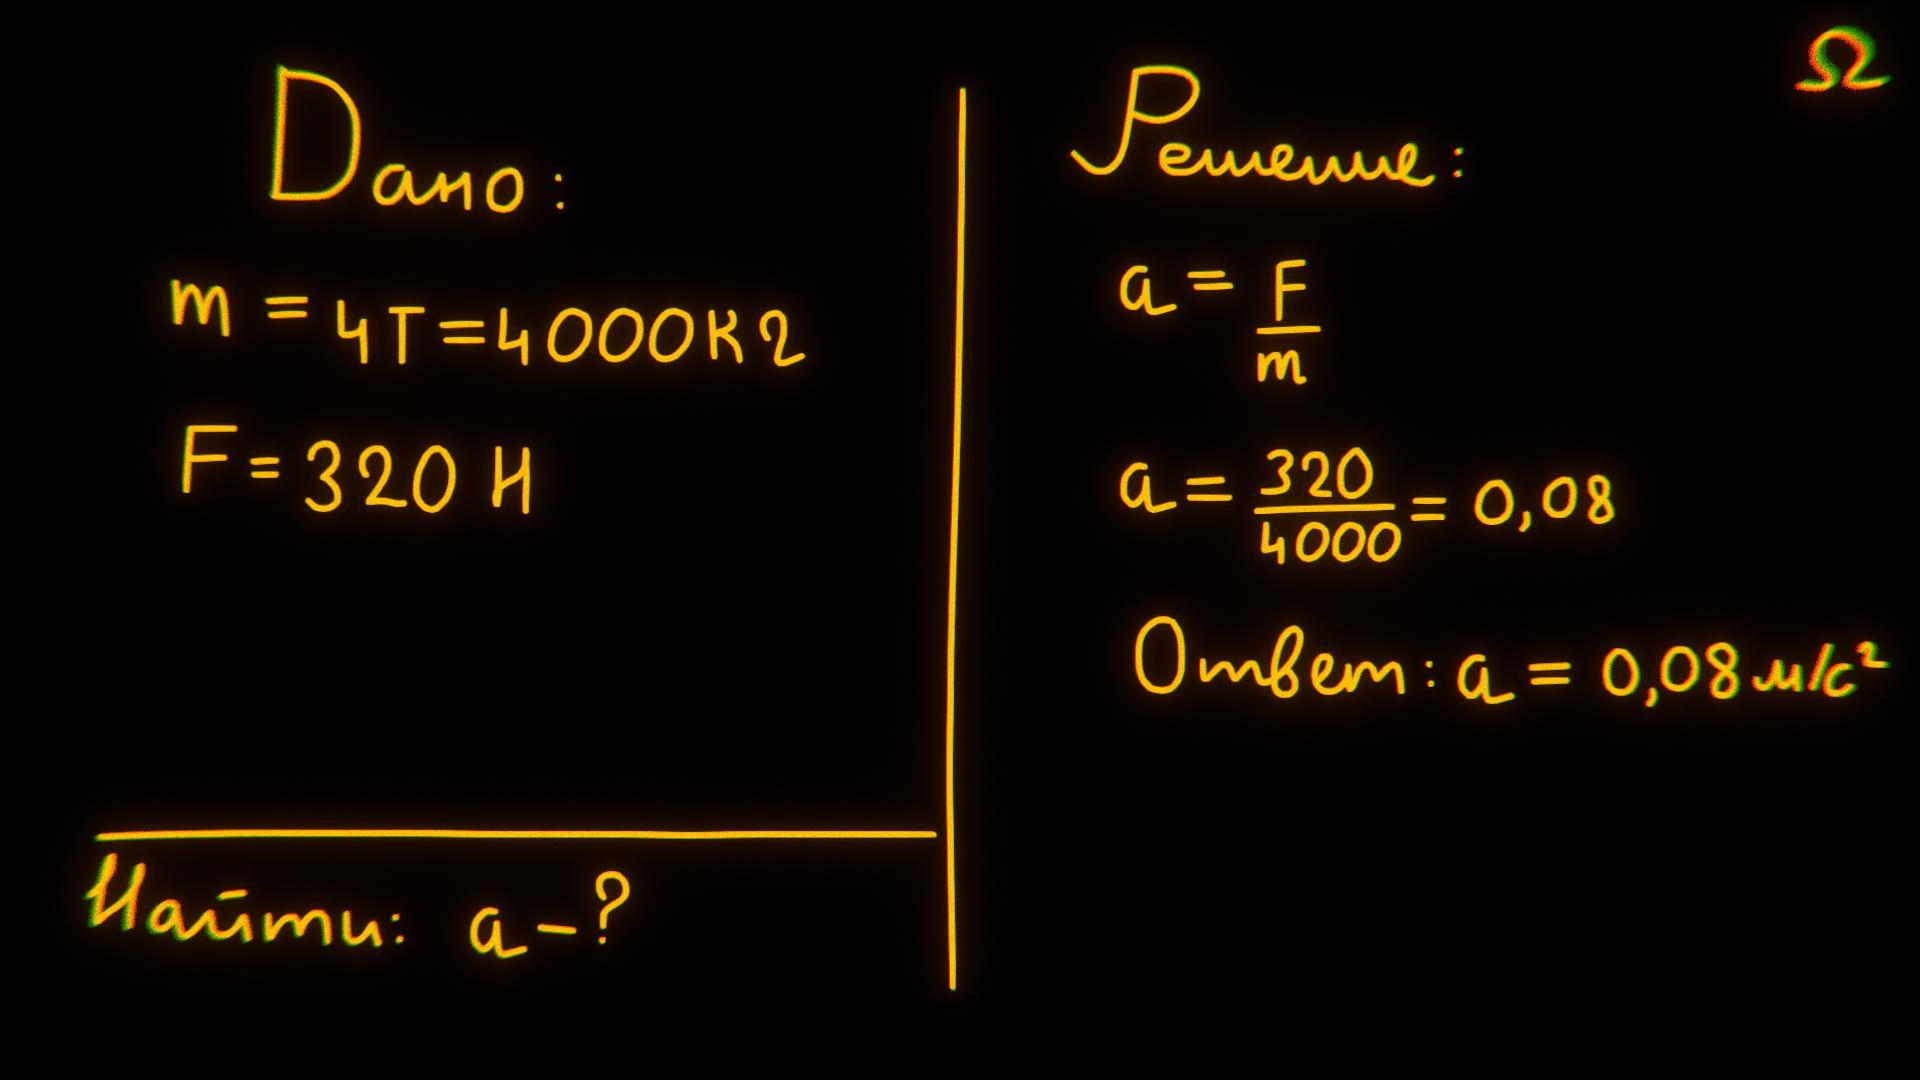 Дано:
m = 4т=4000кг
F= 320 Н
Найти: a-?
Ω
Решение:
a = F/m
a = 320/4000 = 0,08
Ответ: a = 0,08м/с²